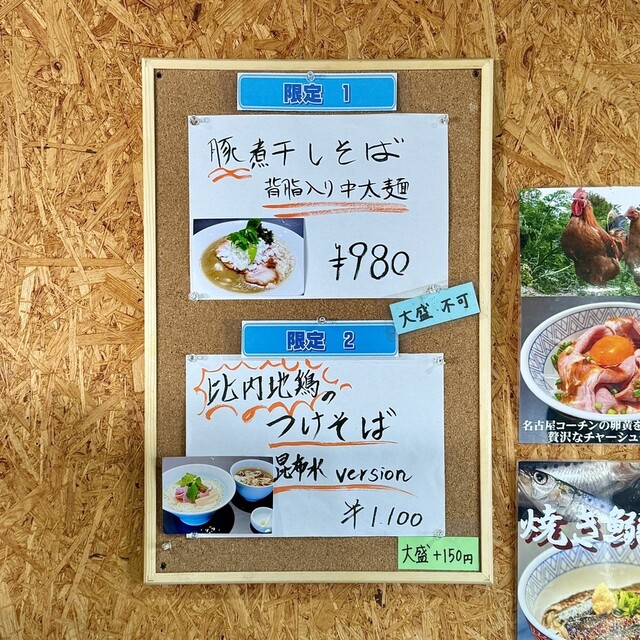 限定 1
豚煮干しそば
背脂入り中太麺
¥980
大盛 不可
限定 2
比内地鶏の
つけそば
昆布水 version
¥1,100
大盛+150円
名古屋コーチンの卵黄を
贅沢なチャーシュ
焼き鯖